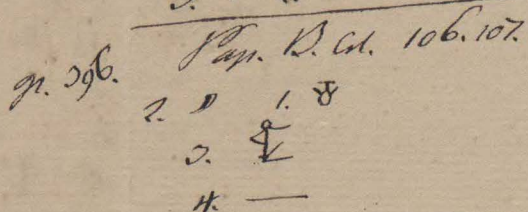 Pap. B. Col. 106. 107.
gr. 396.
2. 1.
3.
4. —